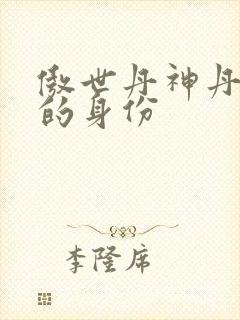 傲世丹神丹
的身份
李隆席